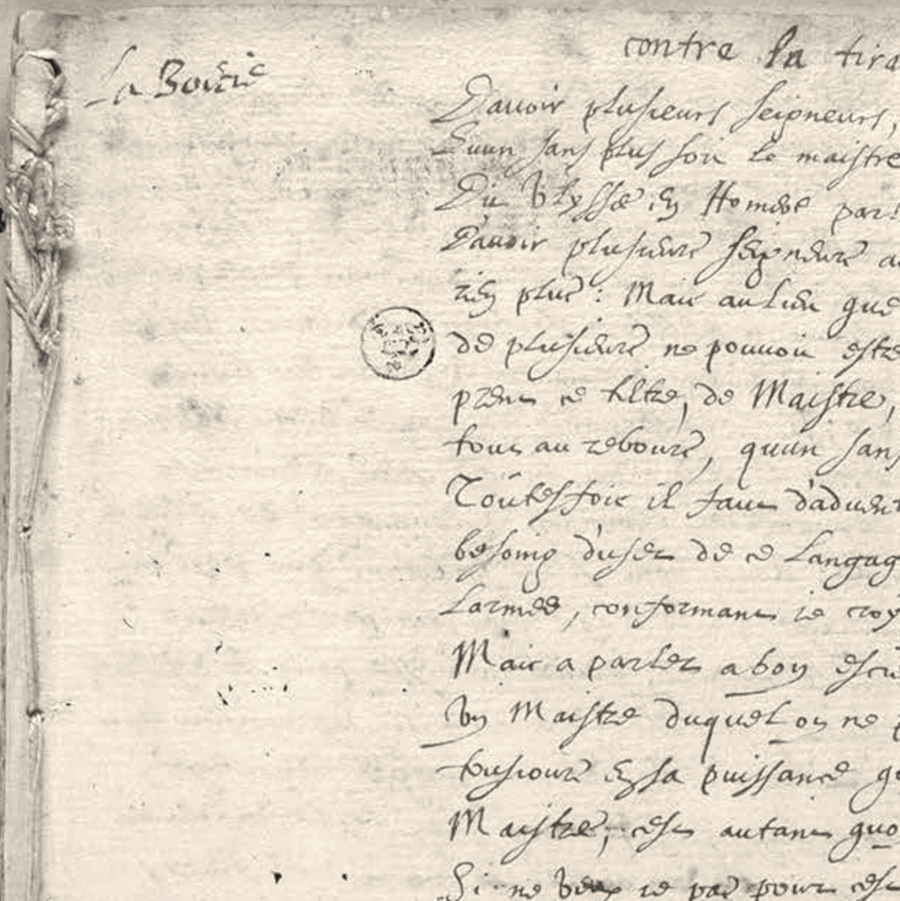 La Boitie
contre la tira
Davoir plusieurs seigneurs,
Quun sans plus soit le maistre
Dit Ulysse en Homere par
Davoir plusieurs seigneurs a
rien plus: Mais au lieu que
de plusieurs ne pouvoit estre
prent ce tiltre, de Maistre,
tout au rebours, quun sans
Toutesfois il faut d'aduen
besoing d'user de ce langag
Larmee, conformant ie croy
Mais a parler a bon esci
Un Maistre duquel on ne
tousiours en sa puissance
Maistres, cest autant quo
Si ne veux ie pas pour